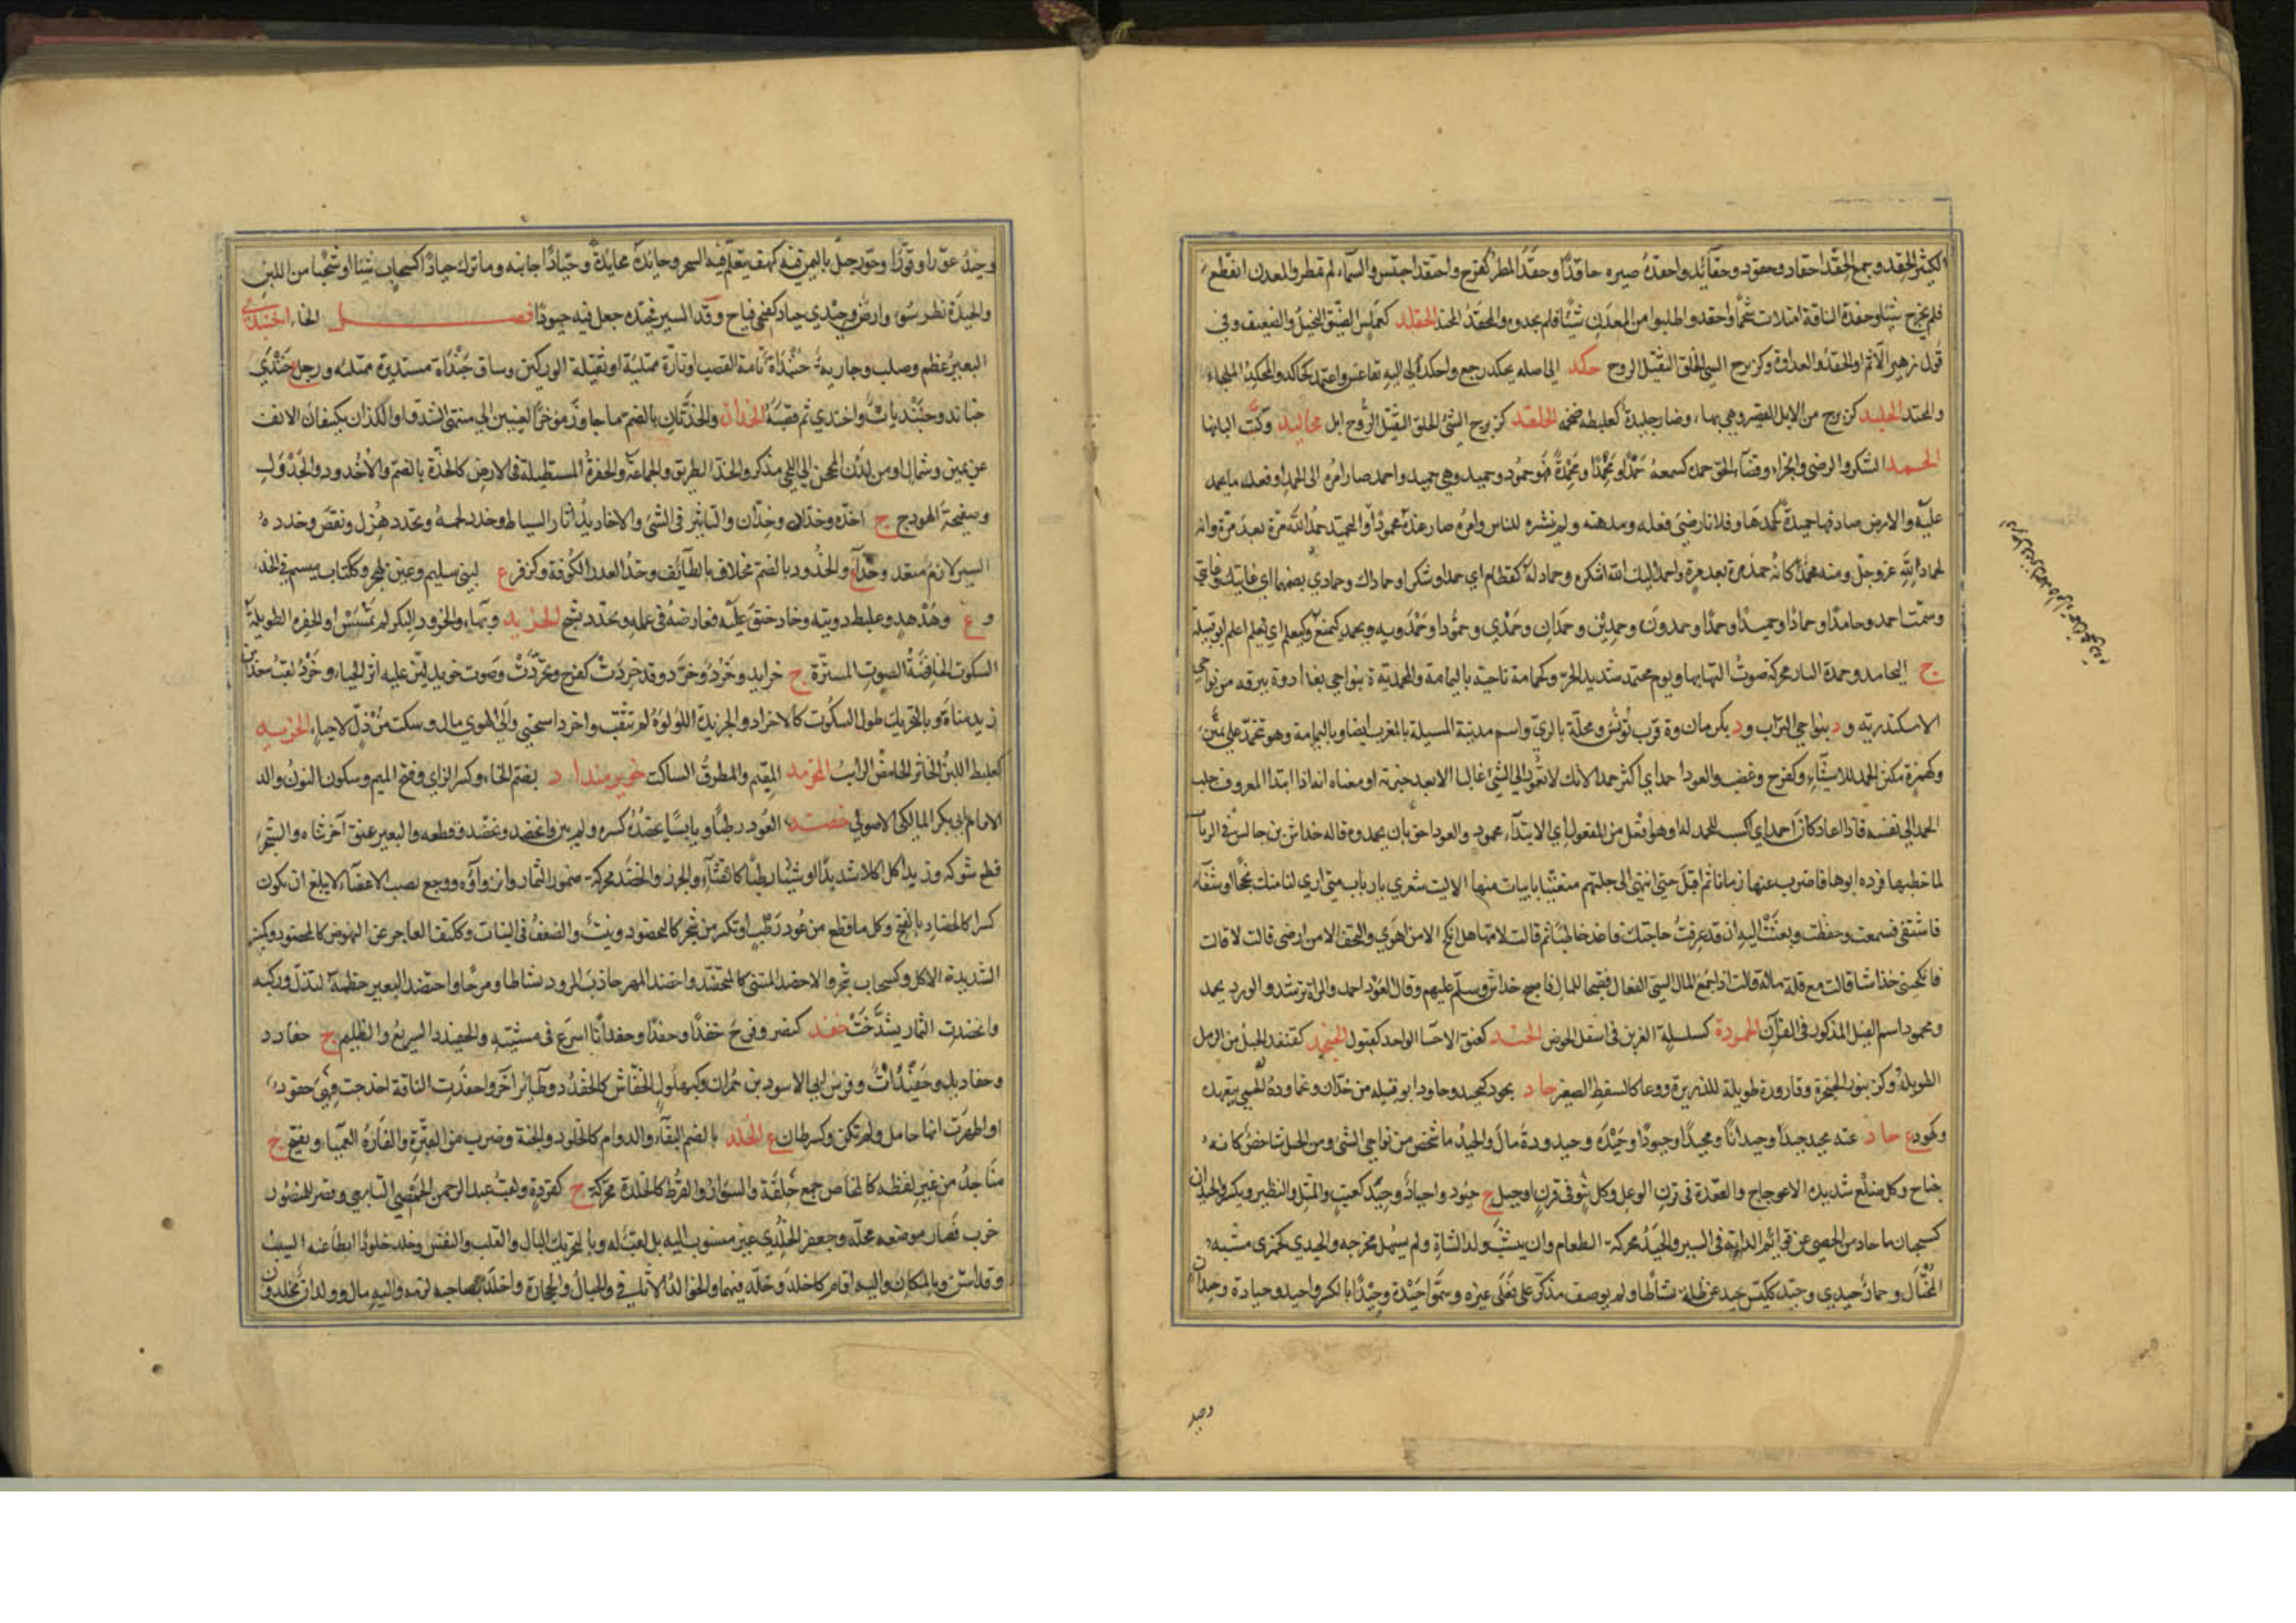 الكثير الحقد وجمع الحقد احقاد وحقود وحقائد واحقده صيره حاقدا وحقد المطر كفرح واحتقد احتبس والسماء لم تمطر والمعدن انقطع
فلم يخرج شيئا وحقدة الناقة امتلات شحما واحقدوا طلبوا من المعدن شيئا فلم يجدوه والمحقد المحتد الحقلد كعملس الضيق البخيل والضعيف وفي
قول زهير الاثم او الحقد والعداوة وكزبرج السيئ الخلق الثقيل الروح حكد الى اصله يحكد رجع واحكد الى اليه تقاعس واعتمد كحاكد والمحكد الملجاء
والمحتد الحلبد كزبرج من الابل القصير وهي بهاء وضان حلبدة كعلبطة ضخمة الحلقد كزبرج السيئ الخلق الثقيل الروح ابل محاليد ولت البانها
الحمد الشكر والرضى والجزاء وقضاء الحق حمده كسمعه حمدا ومحمدا ومحمدة فهو حمود وحميد وهي حميدة واحمد صار امره الى الحمد او فعل ما يحمد
عليه والارض صادفها حميدة كحمدها وفلانا رضي فعله ومذهبه ولم ينشره للناس وامره صار عنده محمودا والتحميد حمدك الله مرة بعد مرة وانه
لحماد لله عز وجل ومنه محمد كانه حمد مرة بعد مرة واحمد اليك الله اشكره وحماد له كقطام اي حمدا وشكرا وحماداك وحمادي بضمهما اي غايتك وغايتي
وسمت احمد وحامدا وحمادا وحميدا وحمدا وحمدون وحمدين وحمدان وحمدي وحمودا وحمدويه ويحمد كيمنع وكيعلم اي تعلم اعلم ابو قبيلة
ج اليحامد وحمدة النار محركة صوت التهابها ويوم محتمد شديد الحر وكحمامة ناحية باليمامة والمحمدية ة بنواحي بغداد وة ببرقة من نواحي
الاسكندرية ود بنواحي الزاب ود بكرمان وة قرب تونس ومحلة بالري واسم مدينة المسيلة بالمغرب ايضا وة باليمامة وهو يتحمد علي يمتن
وكهمزة مكثر الحمد للاشياء وكفرح غضب والعود احمد اي اكثر حمدا لانك لا تعود الى الشئ غالبا الا بعد خبرته او معناه انه اذا ابتدا المعروف جلب
الحمد الى نفسه فاذا عاد كان احمد اي اكسب للحمد له او هو افعل من المفعول اي الابتداء محمود والعود احق بان يحمدوه قاله خداش بن حابس في الرباب
لما خطبها فرده ابواها فاضرب عنها زمانا ثم اقبل حتى انتهى الى حلتهم متغنيا بابيات منها الا ليت شعري يا رباب متى ارى لنا منك نجحا او شفاء
فاشتفي فسمعت وحفظت وبعثت اليه ان قد عرفت حاجتك فاغد خاطبا ثم قالت لامها هل انكح الا من اهوى والتحف الا من ارضى قالت لا قالت
فانكحيني خداشا قالت مع قلة ماله قالت اذا جمع المال السيئ الفعال فقبحا للمال فاصبح خداش وسلم عليهم وقال العود احمد والمراة ترشد والورد يحمد
ومحمود اسم الفيل المذكور في القران الحمردة كسلسلة الغرين في اسفل الحوض الحتد كعنق الاحسا الواحد كقبول الحنجد كقنفذ الحبل من الرمل
الطويل وكزنبور الحنجرة وقارورة طويلة للذريرة ووعاء كالسفط الصغير حاد يحود كيحيد وحاود ابو قبيلة من حدان وتحاوده الحمى تتعهده
وكهود ع حاد عنه يحيد حيدا وحيدانا ومحيدا وحيودا وحيدة وحيدودة مال والحيد ما شخص من نواحي الشئ ومن الجبل شاخص كانه
جناح وكل ضلع شديدة الاعوجاج والعقدة في قرن الوعل وكل نتو في قرن او جبل ج حيود واحياد وحيد كعنب والمثل والنظير ويكسر والحيدان
كسحبان ما حاد من الحصى عن قوائم الدابة في السير والحيد محركة الطعام وان ينشب ولد الشاة ولم يسهل مخرجه والحيدى كجمزى مشية
المختال وحمار حيدى وحيد ككيس يحيد عن ظله نشاطا ولم يوصف مذكر على فعلى غيره وسموا حيدة وحيدا بالكسر واحيد وحيادة وحيدان
وحيد
وحيد عور او قور او حور جبل باليمن فيه كهف يتعلم فيه السحر وحايده محايدة وحيادا جانبه وما ترك حيادا كسحاب شيئا او شخبا من اللبن
والحيدة نظر سوء وارض وحيدي حياد كفيحي فياح وقد السير فحيده جعل فيه حيودا فصل الخاء اخبندى
البعير عظم وصلب وجارية خبنداة تامة القصب او تارة ممتلئة او ثقيلة الوركين وساق خبنداة مستديرة ممتلئة ورجل خبندى
خباند وخبنديات واخبندى تم قصبه الخدان والخدتان بالضم ما جاوز مؤخر العينين الى منتهى الشدق او اللذان يكتنفان الانف
عن يمين وشمال او من لدن المحجر الى اللحي مذكر والخد الطريق والجماعة والحفرة المستطيلة في الارض كالخدة بالضم والاخدود والجدول
وصفيحة الهودج ج اخدة وخداد وخدان والتاثير في الشئ والاخاديد اثار السياط وخدد لحمه وتخدد هزل ونقص وخدده
السير لازم متعد وخداء ع والخدود بالضم مخلاف بالطائف وخد العدراء الكوفة وكزفر ع لبني سليم وعين بهجر وككتاب ميسم في الخد
وع وهدهد وعلبط دويبة وخاد خنق عليه فعارضه في عمله وتخدد تشنج الخريد وبهاء والخرود البكر لم تمسس او الخفرة الطويلة
السكوت الخافضة الصوت المسترة ج خرايد وخرد وخرد وقد خردت كفرح وتخردت وصوت خريد لين عليه اثر الحياء وخرد لقب سعد بن
زيد مناة وبالتحريك طول السكوت كالاخراد والخريدة اللؤلؤة لم تثقب واخرد استحيى والى اللهو مال وسكت من ذل لا حياء الخربد
كعلبط اللبن الخاثر الحامض الرايب المخرمد المقيم والمطرق الساكت خويزمنداد د بضم الخاء وكسر الزاي وفتح الميم وسكون النون والد
الامام ابي بكر المالكي الاصولي خضد العود رطبا او يابسا يخضده كسره ولم يبن فانخضد وتخضد وقطعه والبعير عنق اخر ثناه والشجر
قطع شوكه وزيد اكل اكلا شديدا او شيئا رطبا كالقثاء والجزر والخضد محركة ضمور الثمار وانزواؤه ووجع يصيب الاعضاء لا يبلغ ان يكون
كسرا كالخضاد بالفتح وكل ما قطع من عود رطب او تكسر من شجر كالمخضود ونبت والضعف في النبات وككتف العاجز عن النهوض كالمخضود وكمنبر
الشديد الاكل وكسحاب شجر والاخضد المتثني كالمتخضد واخضد المهر جاذب المرود نشاطا ومرحا واختضد البعير خطمه ليذل وركبه
وانخضدت الثمار تشدخت خفد كنصر وفرح خفدا وخفدا وخفدانا اسرع في مشيته والخفيدد السريع والظليم ج خفادد
وخفاديد وخفيددات وفرس ابي الاسود بن حمران وكبهلول الخفاش كالخفدد وطائر اخر واخفدت الناقة اخدجت فهي خفود
او اظهرت انها حامل ولم تكن وكسرطان ع الخلد بالضم البقاء والدوام كالخلود والجنة وضرب من القبرة والفارة العمياء ويفتح ج
مناجذ من غير لفظه كالمخاض جمع خلفة والسوار والقرط كالخلدة محركة ج كقردة ولقب عبد الرحمن الحمصي التابعي وقصر للمنصور
خرب فصار موضعه محلة وجعفر الخلدي غير منسوب اليه بل لقب له وبالتحريك البال والقلب والنفس وخلد خلودا ابطا عنه الشيب
وقد اسن وبالمكان واليه اقام كاخلد وخلد فيهما والخوالد الاثافي والجبال والحجارة واخلد بصاحبه لزمه واليه مال وولدان مخلدون